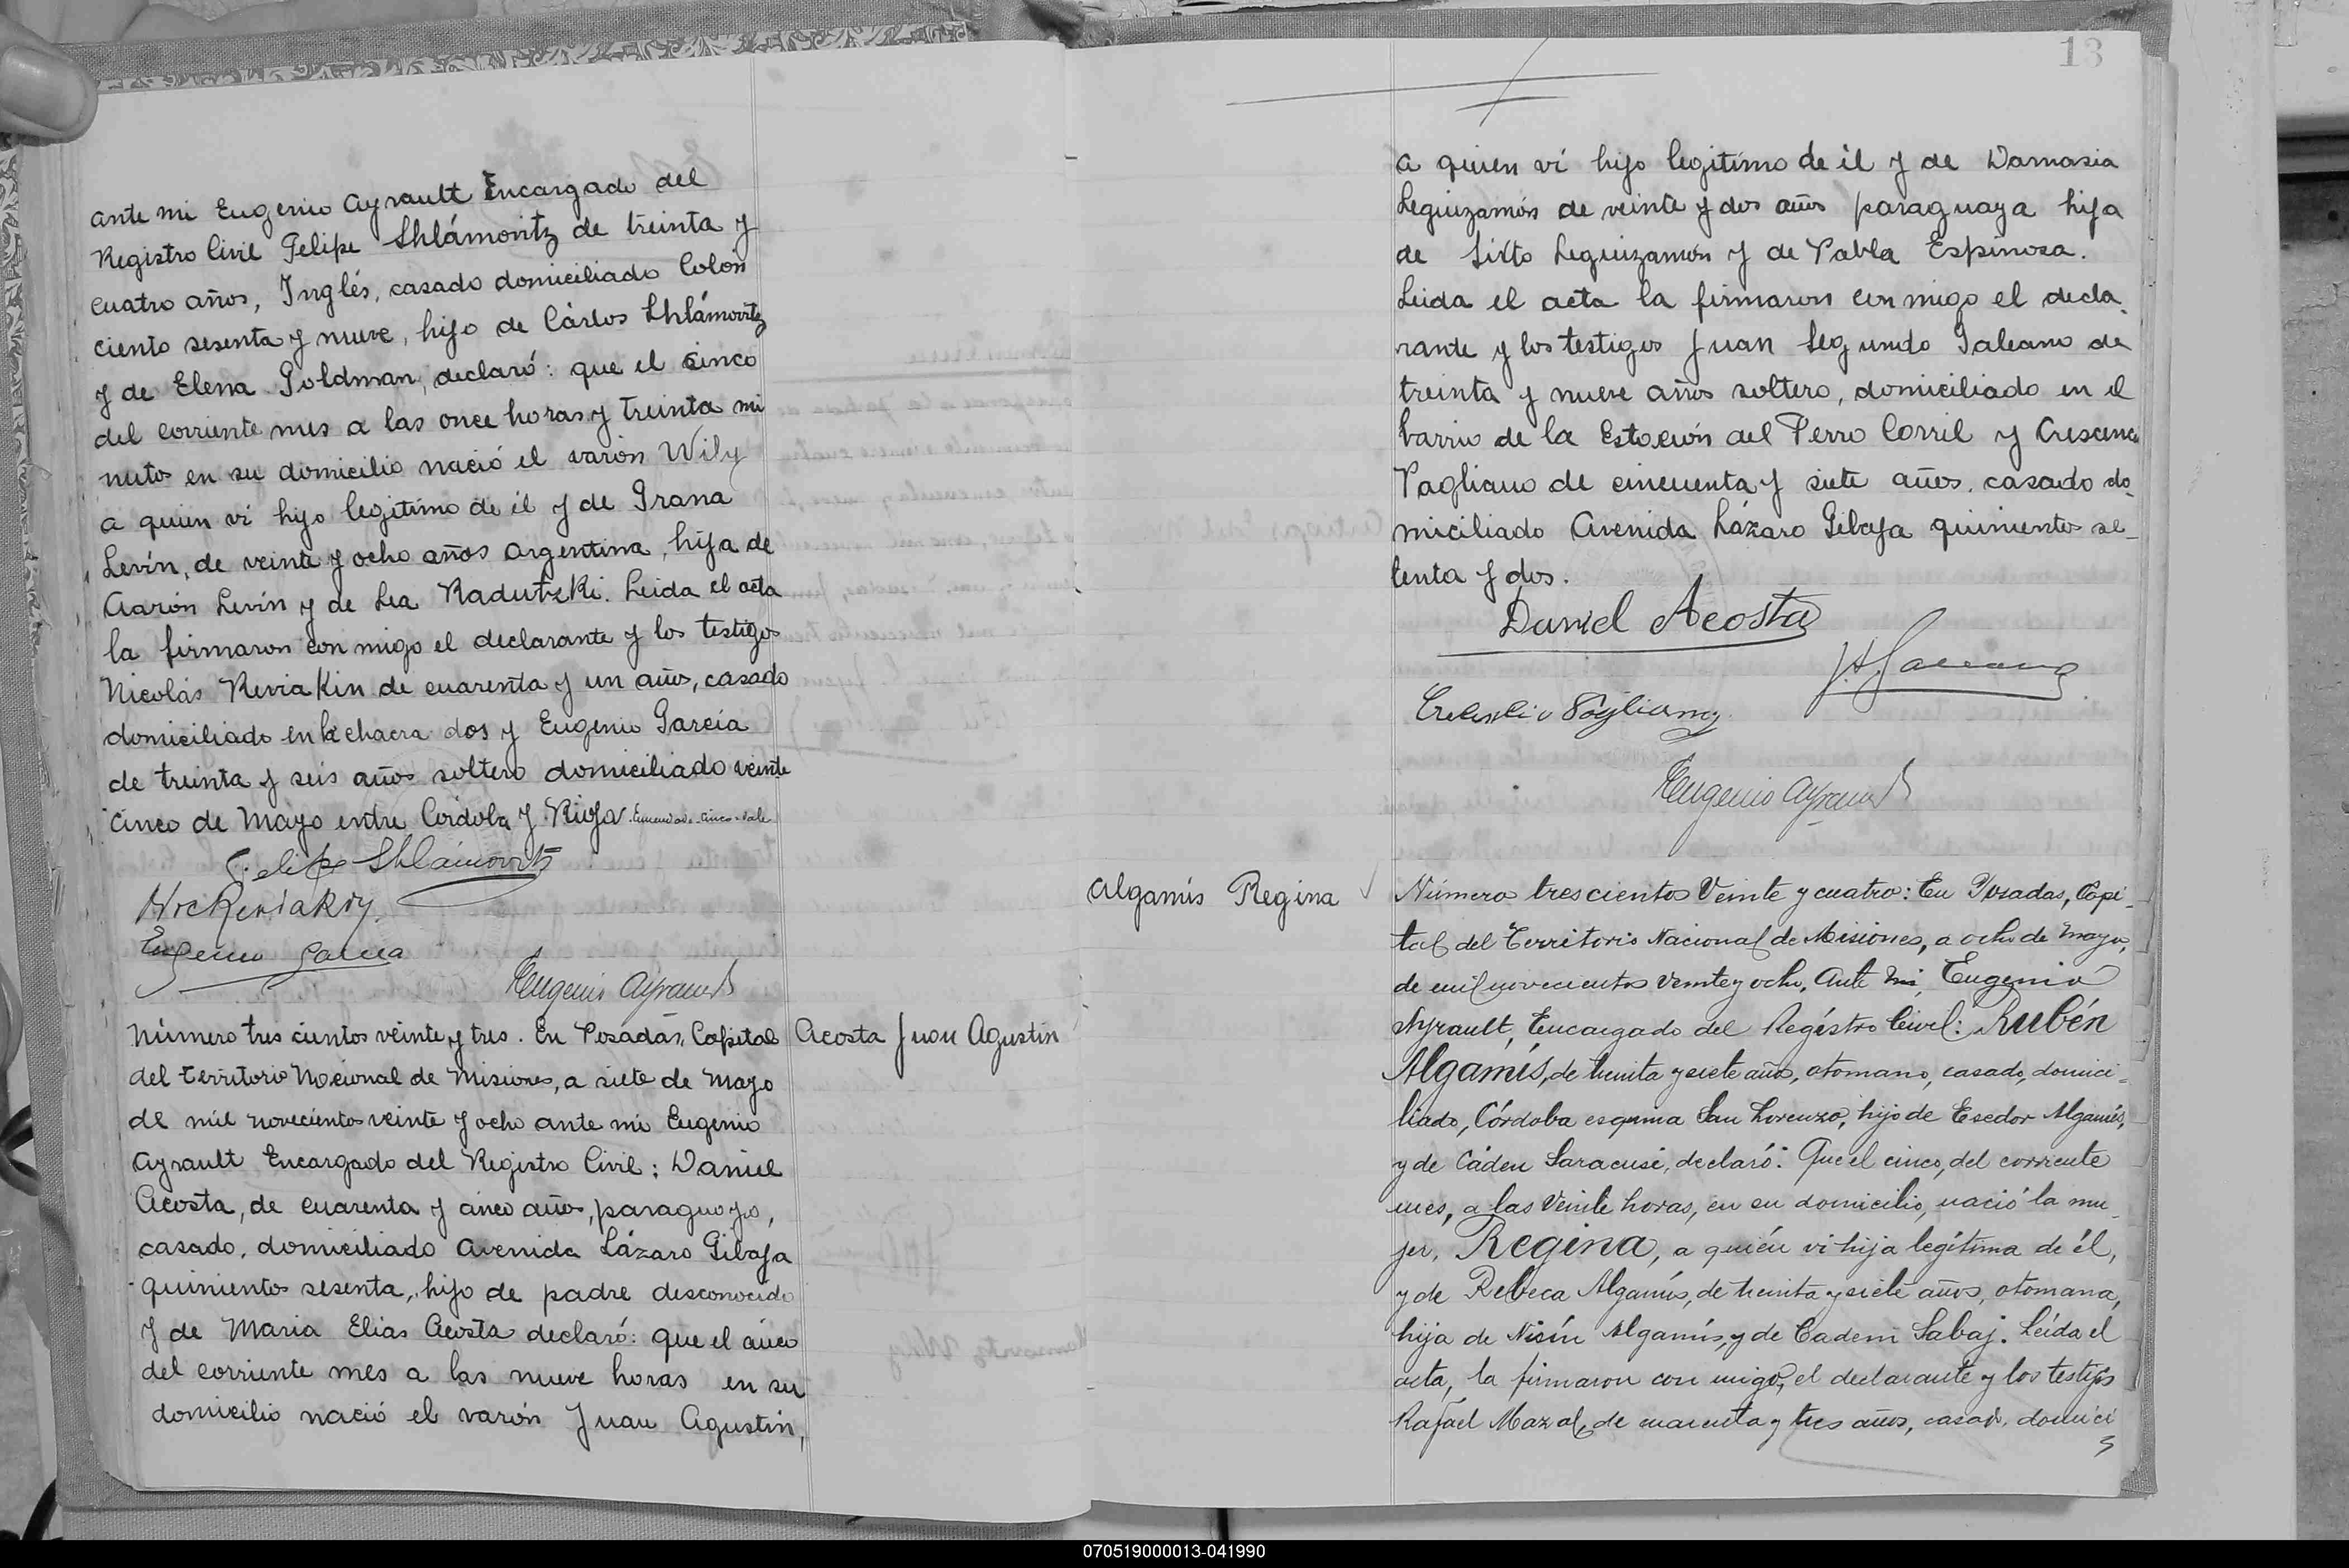 ante mi Eugenio Ayrault Encargado del
Registro Civil Felipe Shlámovitz de treinta y
cuatro años, Inglés, casado domiciliado Colon
ciento sesenta y nueve, hijo de Cárlos Shlámovitz
y de Elena Goldman, declaró: que el cinco
del corriente mes a las once horas y treinta mi
nutos en su domicilio nació el varón Wily
a quien vi hijo legitimo de él y de Grana
Levín, de veinte y ocho años argentina, hija de
Aarón Levín y de Lea Radutzki. Leida el acta
la firmaron con migo el declarante y los testigos
Nicolás Reviakin de cuarenta y un años, casado
domiciliado en la chacra dos y Eugenio García
de treinta y seis años soltero domiciliado veinte
cinco de Mayo entre Cordoba y Rioja. Enmendado-cinco-vale
Felipe Shlámovitz
Eugenio Garcia
Eugenio Ayrault
Número tres cientos veinte y tres. En Posadas, Capital
Acosta Juan Agustin
del Territorio Nacional de Misiones, a siete de Mayo
de mil novecientos veinte y ocho ante mi Eugenio
Ayrault Encargado del Registro Civil: Daniel
Acosta, de cuarenta y cinco años, paraguayo,
casado, domiciliado Avenida Lázaro Gibaja
quinientos sesenta, hijo de padre desconocido
y de Maria Elias Acosta declaró: que el cinco
del corriente mes a las nueve horas en su
domicilio nació el varón Juan Agustin,
13
a quien vi hijo legitimo de él y de Damasia
Leguizamón de veinte y dos años paraguaya hija
de Sixto Leguizamón y de Pabla Espinosa.
Leida el acta la firmaron con migo el decla-
rante y los testigos Juan Segundo Galeano de
treinta y nueve años soltero, domiciliado en el
barrio de la Estación del Ferro Carril y Crescencio
Pagliano de cincuenta y siete años, casado do-
miciliado Avenida Lázaro Gibaja quinientos se-
tenta y dos.
Daniel Acosta
Crescencio Pagliano
Eugenio Ayrault
Algamis Regina
Número trescientos Veinte y cuatro: En Posadas, Capi-
tal del Territorio Nacional de Misiones, a ocho de Mayo,
de mil novecientos veinte y ocho, Ante mi, Eugenio
Ayrault, Encargado del Registro Civil: Rubén
Algamís, de treinta y siete años, otomano, casado, domici-
liado, Córdoba esquina San Lorenzo, hijo de Esedor Algamís,
y de Cáden Saracusi, declaró: Que el cinco, del corriente
mes, a las Veinte horas, en su domicilio, nació la mu-
jer, Regina, a quién vi hija legítima de él,
y de Rebeca Algamís, de treinta y siete años, otomana,
hija de Nisín Algamís, y de Cadem Sabaj. Leída el
acta, la firmaron con migo, el declarante y los testigos
Rafael Mazal, de cuarenta y tres años, casado, domici
070519000013-041990